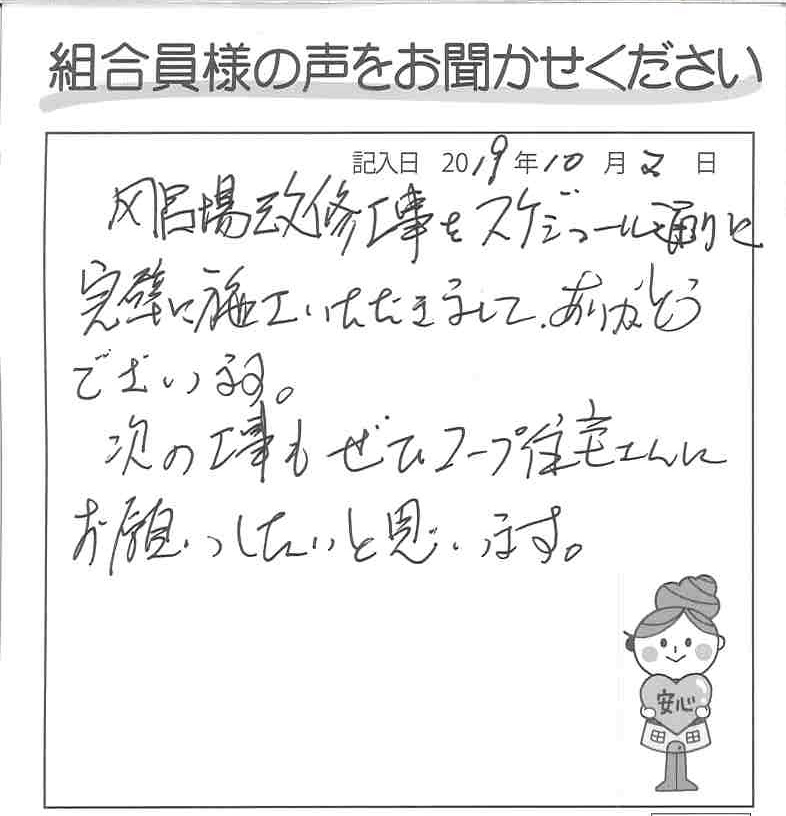 組合員様の声をお聞かせください
記入日 2019年10月2日
風呂場改修工事をスケジュール通りに
完璧に施工いただきまして、ありがとう
ございます。
次の工事もぜひコープ住宅さんに
お願いしたいと思います。
安心